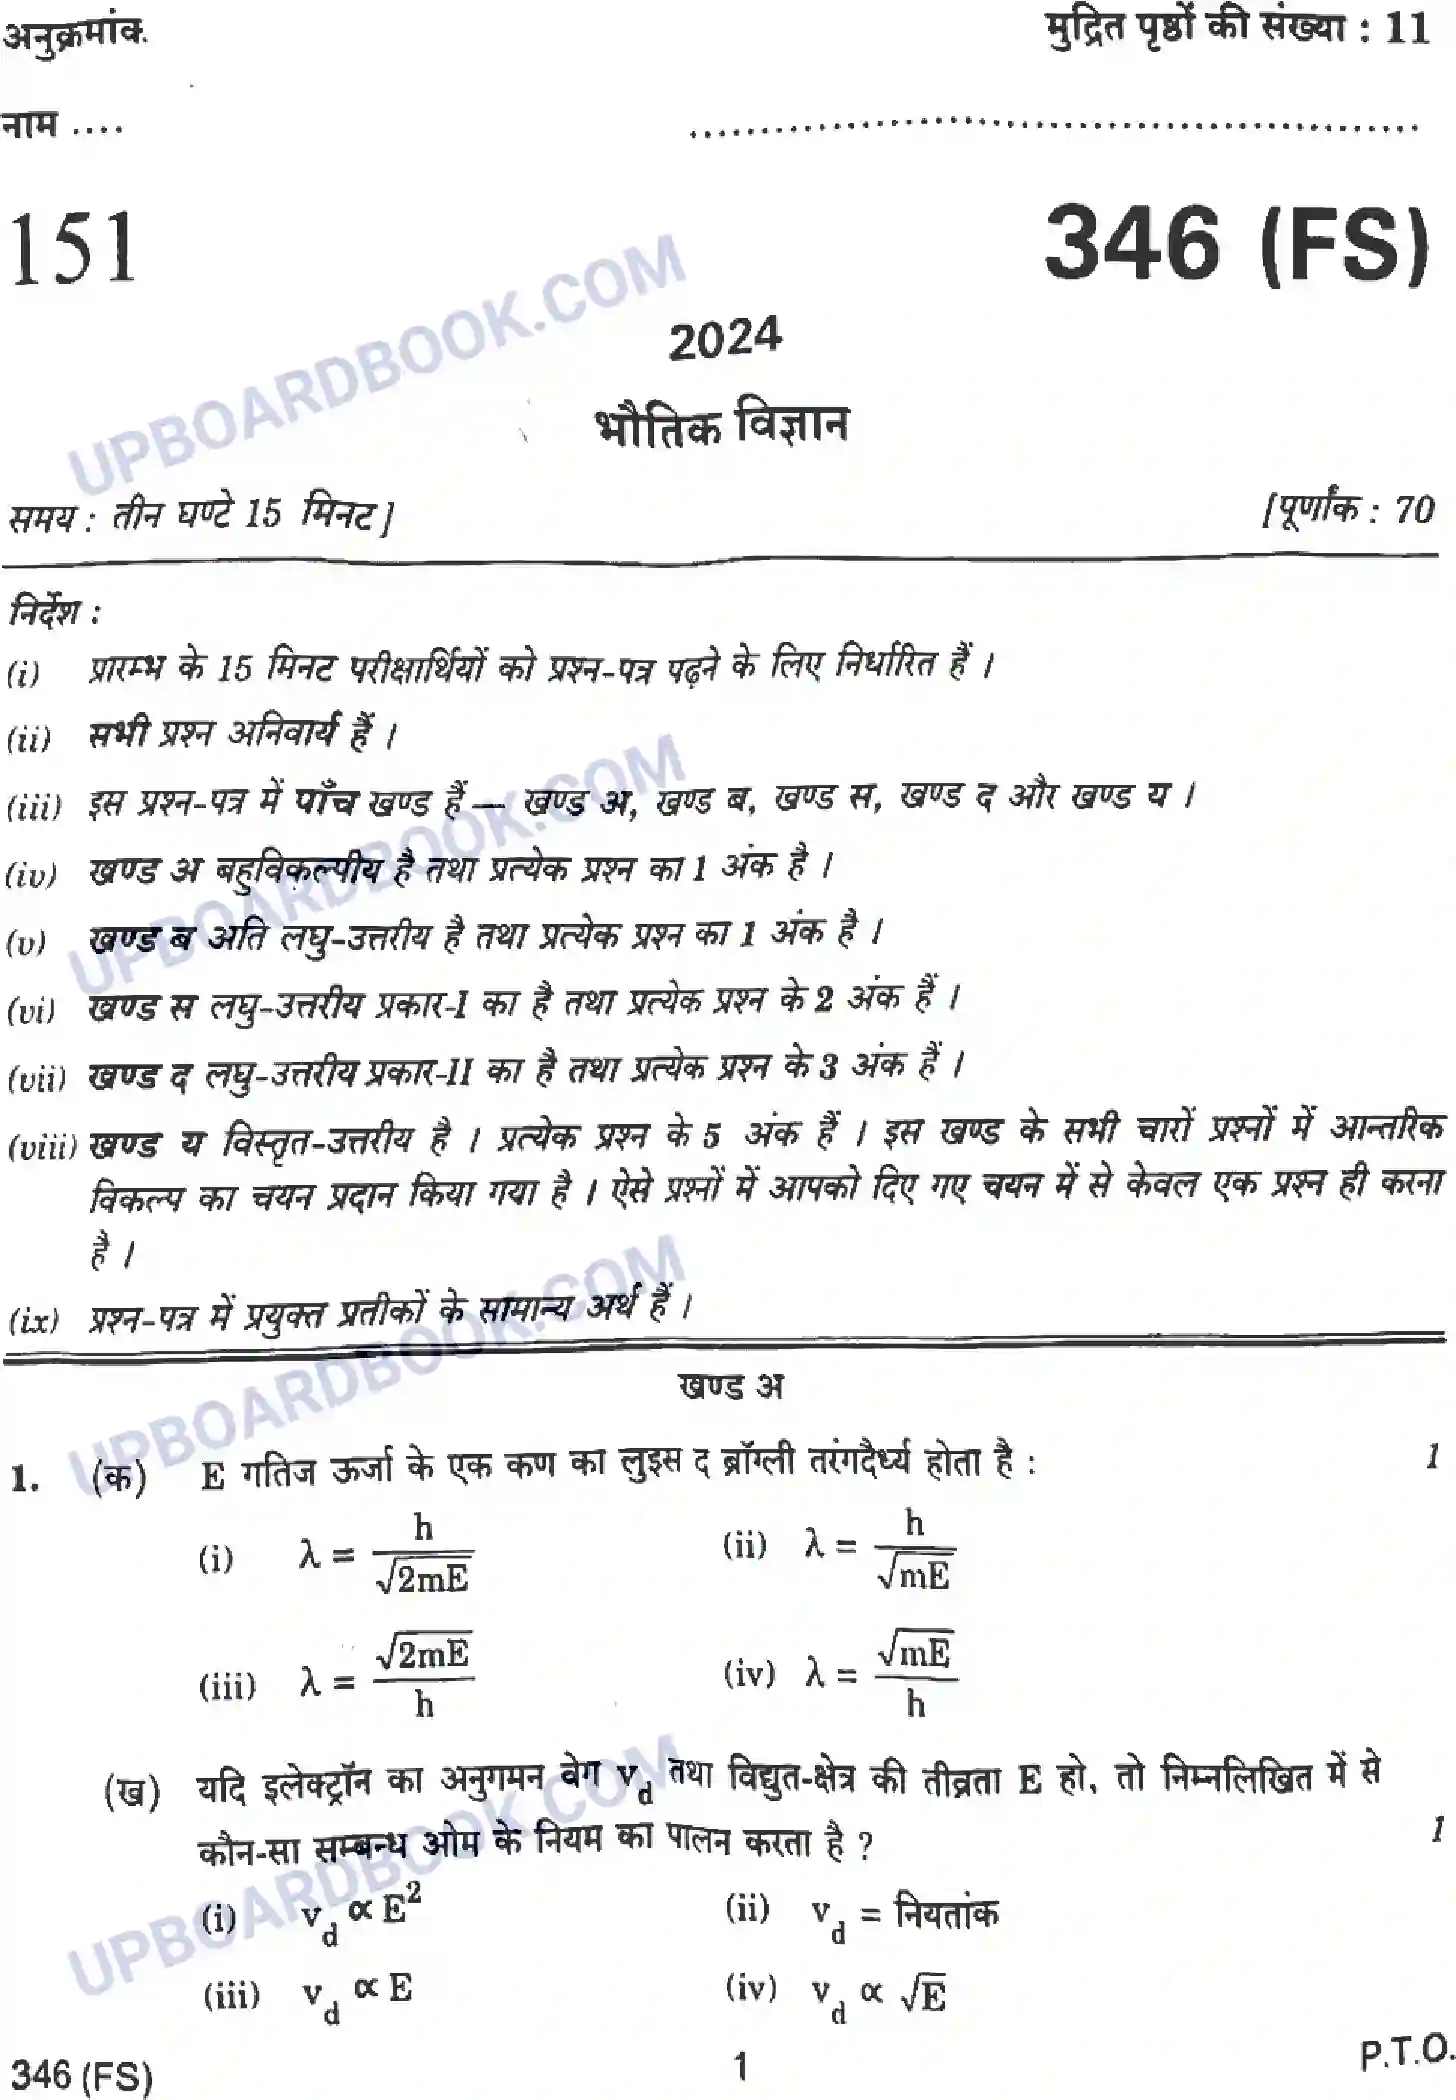 अनुक्रमांक.
मुद्रित पृष्ठों की संख्या : 11
नाम ....
151
346 (FS)
2024
भौतिक विज्ञान
समय : तीन घण्टे 15 मिनट]
[पूर्णांक : 70
निर्देश :
(i) प्रारम्भ के 15 मिनट परीक्षार्थियों को प्रश्न-पत्र पढ़ने के लिए निर्धारित हैं ।
(ii) सभी प्रश्न अनिवार्य हैं ।
(iii) इस प्रश्न-पत्र में पाँच खण्ड हैं — खण्ड अ, खण्ड ब, खण्ड स, खण्ड द और खण्ड य ।
(iv) खण्ड अ बहुविकल्पीय है तथा प्रत्येक प्रश्न का 1 अंक है ।
(v) खण्ड ब अति लघु-उत्तरीय है तथा प्रत्येक प्रश्न का 1 अंक है ।
(vi) खण्ड स लघु-उत्तरीय प्रकार-I का है तथा प्रत्येक प्रश्न के 2 अंक हैं ।
(vii) खण्ड द लघु-उत्तरीय प्रकार-II का है तथा प्रत्येक प्रश्न के 3 अंक हैं ।
(viii) खण्ड य विस्तृत-उत्तरीय है । प्रत्येक प्रश्न के 5 अंक हैं । इस खण्ड के सभी चारों प्रश्नों में आन्तरिक
विकल्प का चयन प्रदान किया गया है । ऐसे प्रश्नों में आपको दिए गए चयन में से केवल एक प्रश्न ही करना
है ।
(ix) प्रश्न-पत्र में प्रयुक्त प्रतीकों के सामान्य अर्थ हैं ।
खण्ड अ
1. (क) E गतिज ऊर्जा के एक कण का लुइस द ब्रॉग्ली तरंगदैर्ध्य होता है : 1
(i) λ = h/√2mE (ii) λ = h/√mE
(iii) λ = √2mE/h (iv) λ = √mE/h
(ख) यदि इलेक्ट्रॉन का अनुगमन वेग v_d तथा विद्युत-क्षेत्र की तीव्रता E हो, तो निम्नलिखित में से
कौन-सा सम्बन्ध ओम के नियम का पालन करता है ? 1
(i) v_d ∝ E² (ii) v_d = नियतांक
(iii) v_d ∝ E (iv) v_d ∝ √E
346 (FS) 1 P.T.O.
UPBOARDBOOK.COM
UPBOARDBOOK.COM
UPBOARDBOOK.COM
UPBOARDBOOK.COM